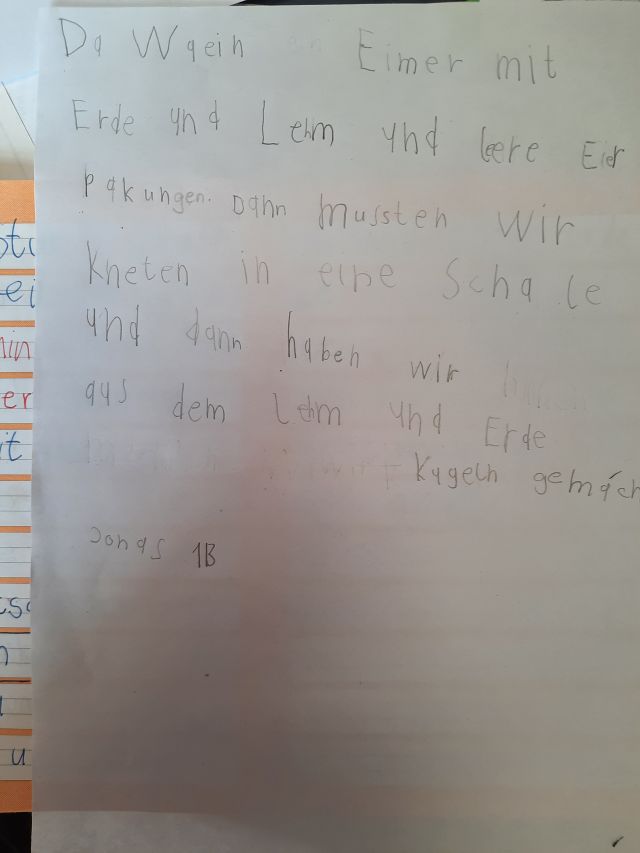 Da Waein Eimer mit
Erde und Lehm und leere Eier
pakungen. Dann mussten wir
kneten in eine Schale
und dann haben wir
aus dem Lehm und Erde
Kugeln gemach
Jonas 1B